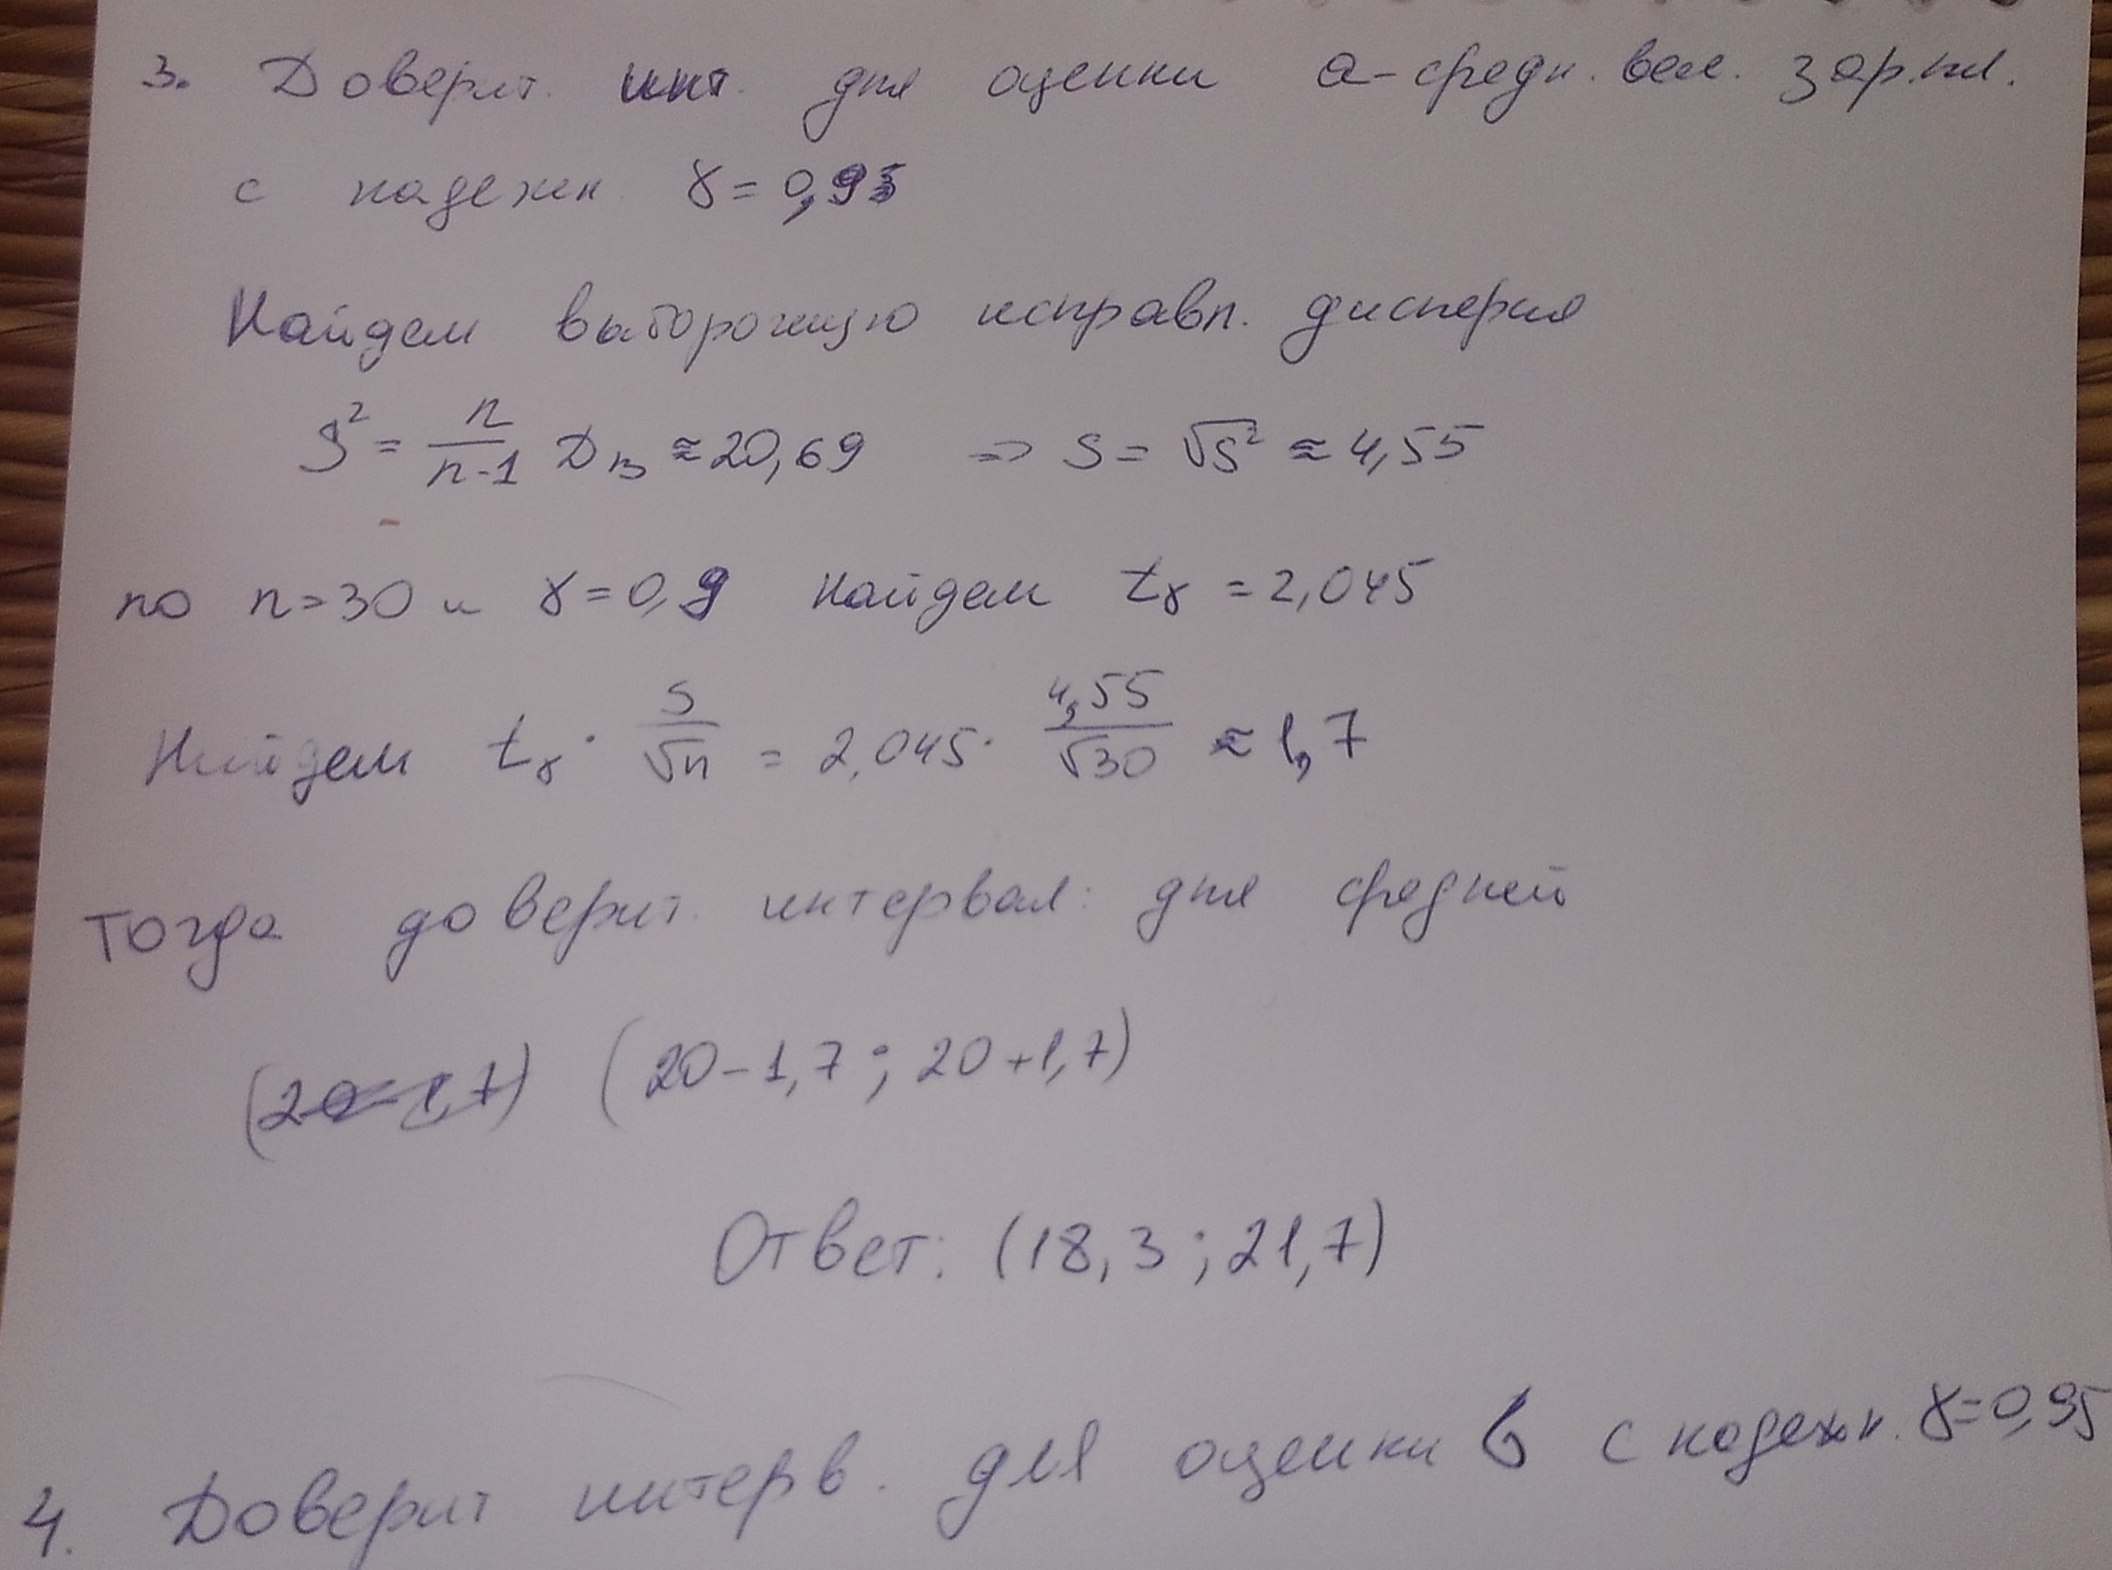 3. Доверит. инт. для оценки a - средн. вел. зар.пл.
с надежн. γ = 0,95
Найдем выборочную исправл. дисперсия
S² = n/(n-1) Dв ≈ 20,69 => S = √S² ≈ 4,55
по n=30 и γ = 0,9 найдем tγ = 2,045
Найдем tγ · S/√n = 2,045 · 4,55/√30 ≈ 1,7
Тогда доверит. интервал: для средней
(20-1,7) (20-1,7; 20+1,7)
Ответ: (18,3; 21,7)
4. Доверит интерв. для оценки б с надежн. γ=0,95